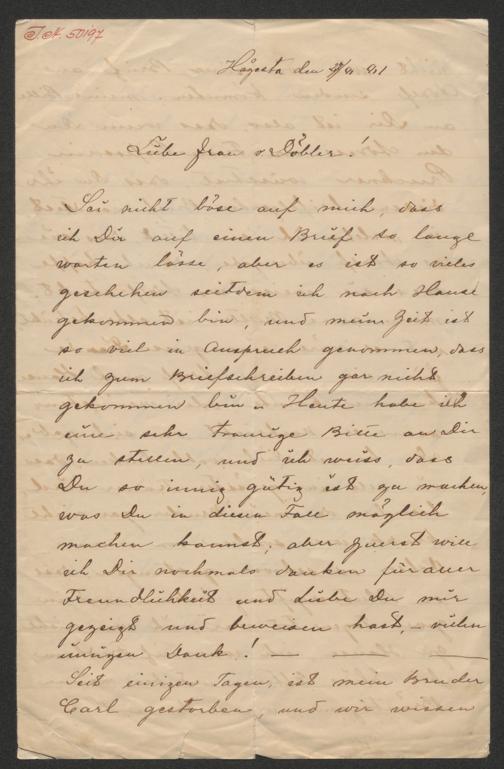 J.N. 50197
Högesta den 4/9 91
Liebe Frau v Döbler!
Sai nicht böse auf mich, dass
ich Dir auf einen Brief so lange
warten lässe, aber es ist so vieles
geschehen seitdem ich nach Hause
gekommen bin, und meine Zeit ist
so viel in Anspruch genommen, dass
ich zum Briefschreiben gar nicht
gekommen bin. Heute habe ich
eine sehr traurige Bitte an Dir
zu stellen, und ich weiss, dass
Du so innig gütig ist zu machen,
was Du in diesen Fall möglich
machen kannst, aber zuerst will
ich Dir nochmals danken für aller
Freundlichkeit und Liebe Du mir
gezeigt und beweisen hast, – vielen
innigen Dank! — — —
Seit einigen Tagen, ist mein Bruder
Carl gestorben, und wir wissen